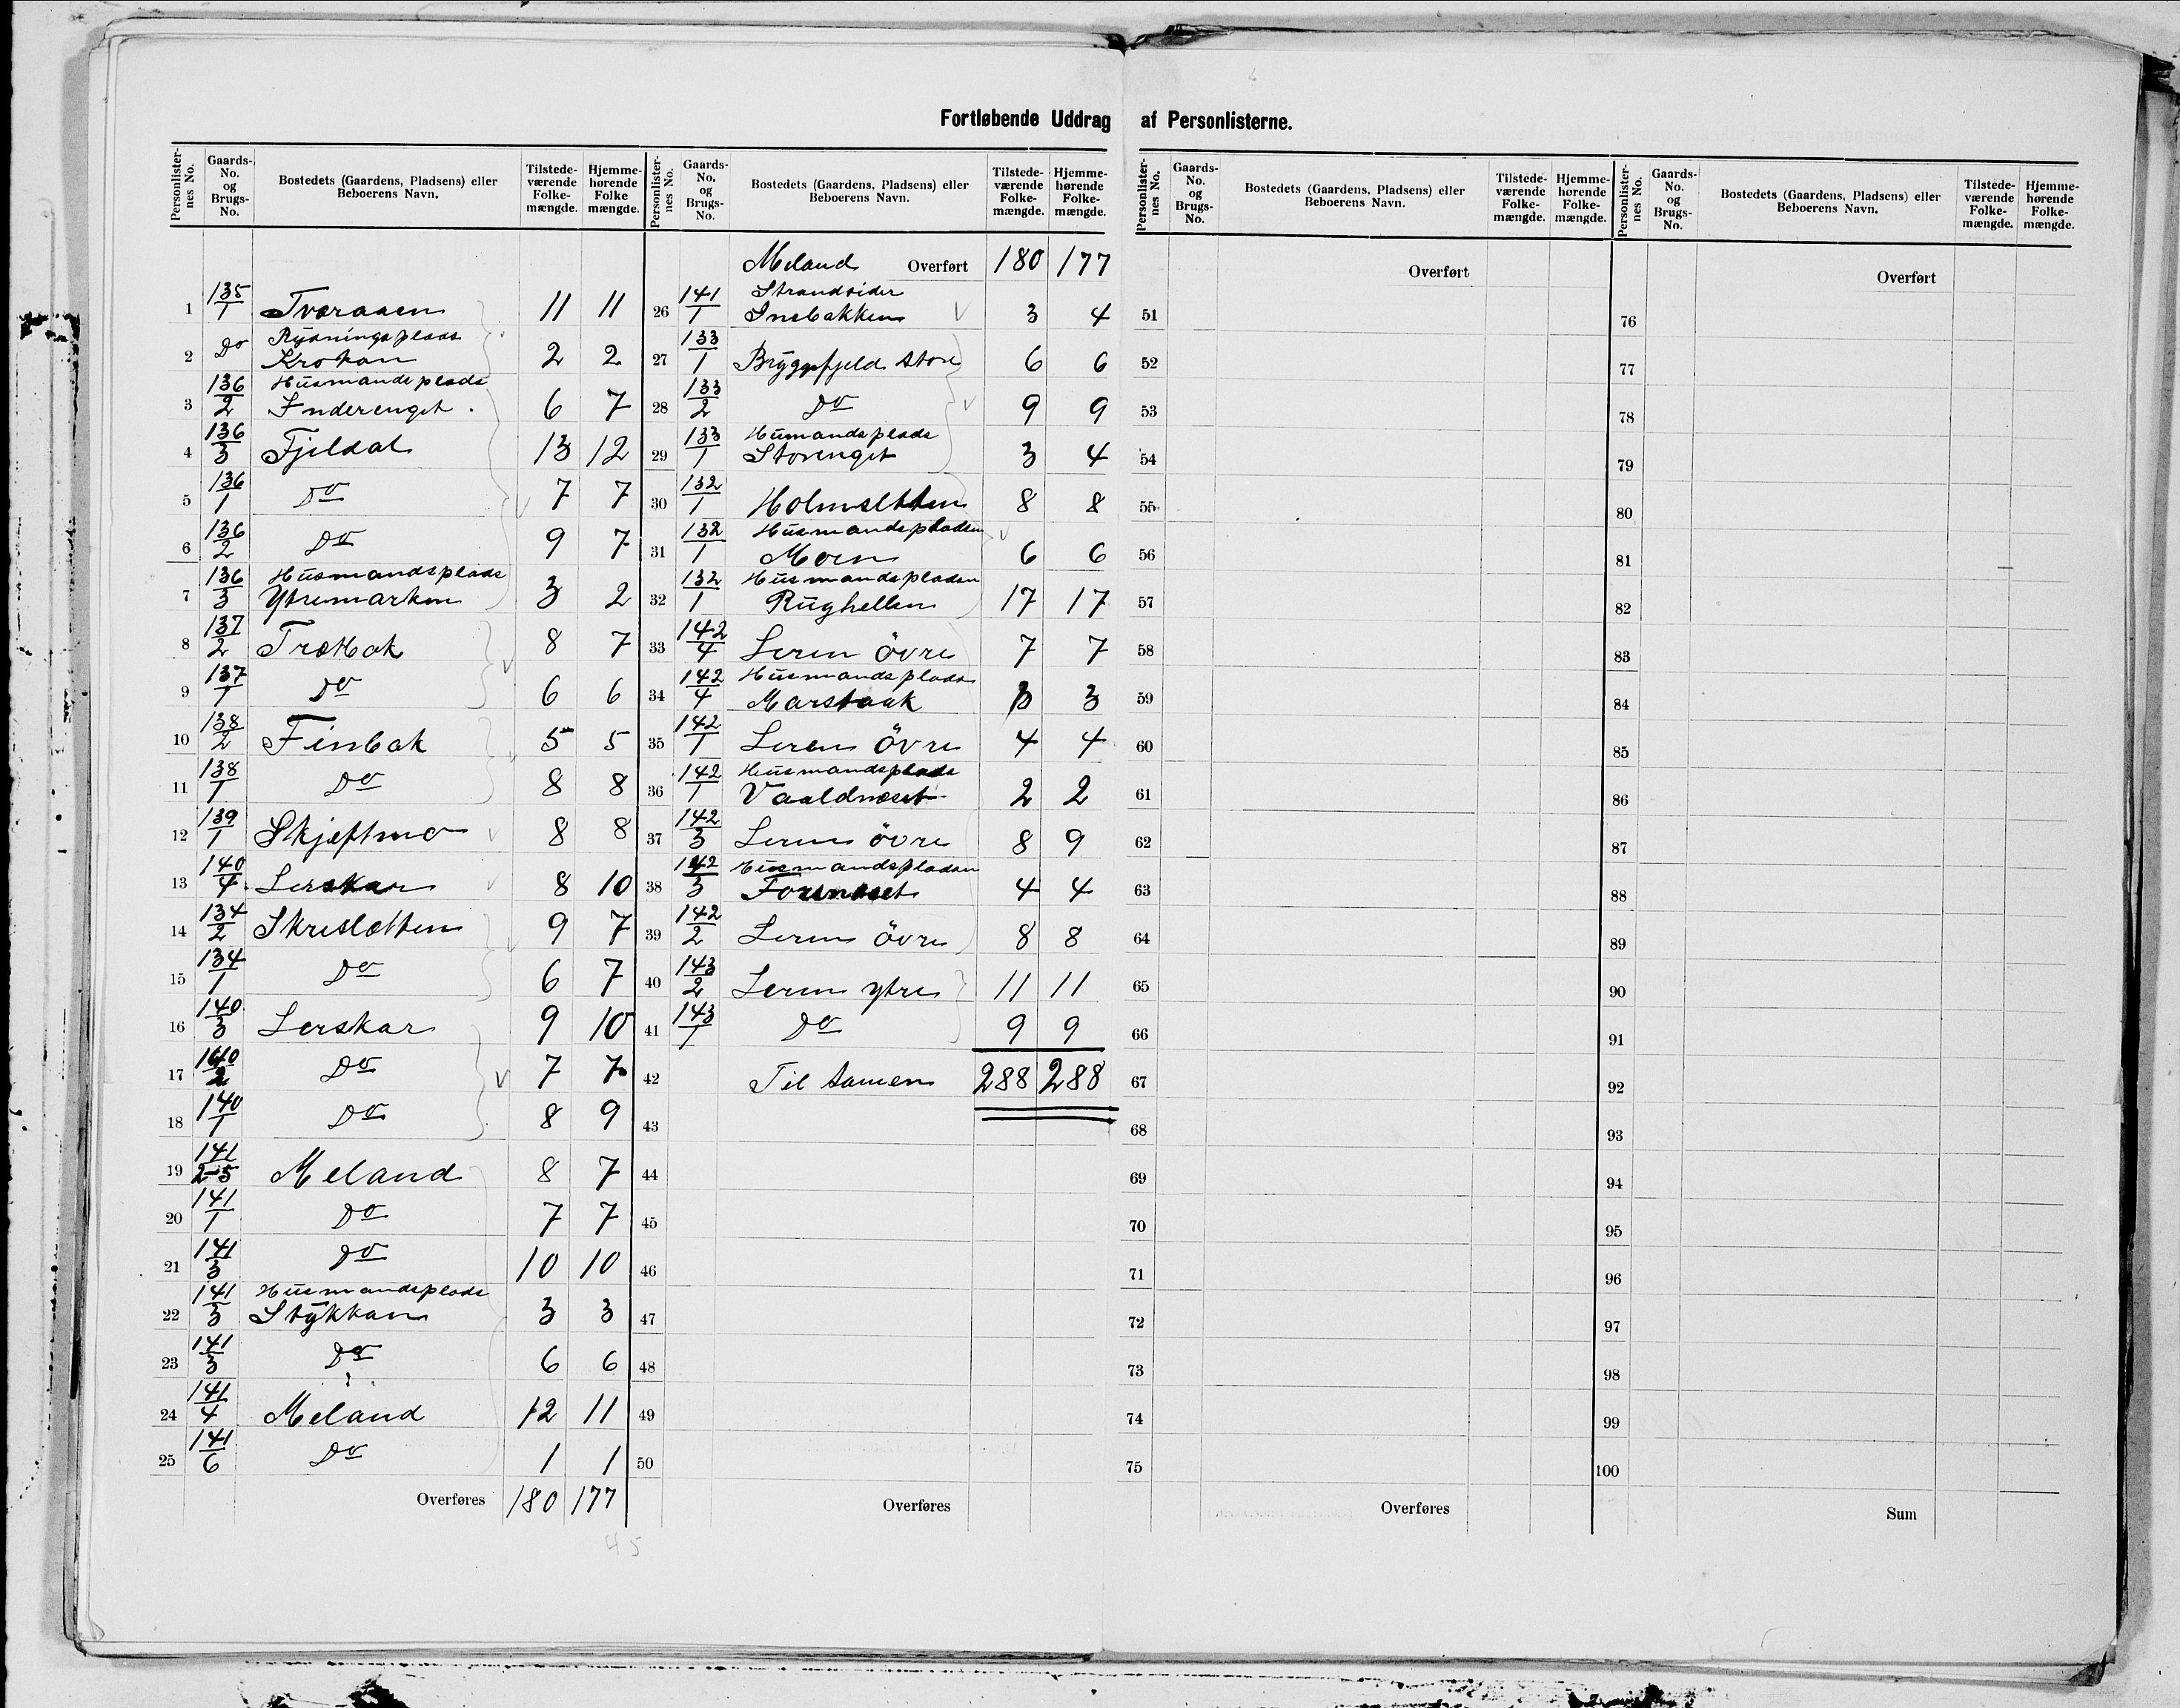 Fortløbende Uddrag af Personlisterne.
Personlisternes No. Gaards-No. og Brugs-No. Bostedets (Gaardens, Pladsens) eller Beboerens Navn. Tilstedeværende Folkemængde. Hjemmehørende Folkemængde.
1 135/1 Tværaaen 11 11
2 Do Rydningsplads Krokan 2 2
3 136/2 Husmandsplads Inderenget. 6 7
4 136/3 Fjeldal 13 12
5 136/1 Do 7 7
6 136/2 Do 9 7
7 136/3 Husmandsplads Ytremarken 3 2
8 137/2 Trætbak 8 7
9 137/1 Do 6 6
10 138/2 Finbak 5 5
11 138/1 Do 8 8
12 139/1 Skjeftmo 8 8
13 140/4 Lerskar 8 10
14 134/2 Skresletten 9 7
15 134/1 Do 6 7
16 140/3 Lerskar 9 10
17 140/2 Do 7 7
18 140/1 Do 8 9
19 141/2-5 Meland 8 7
20 141/1 Do 7 7
21 141/3 Do 10 10
22 141/3 Husmandsplads Stykkan 3 3
23 141/3 Do 6 6
24 141/4 Meland 12 11
25 141/6 Do 1 1
Overføres 180 177
45
Personlisternes No. Gaards-No. og Brugs-No. Bostedets (Gaardens, Pladsens) eller Beboerens Navn. Tilstedeværende Folkemængde. Hjemmehørende Folkemængde.
Meland Overført 180 177
26 141/1 Strandsider Inebakken 3 4
27 133/1 Bryggfjeld store 6 6
28 133/2 Do 9 9
29 133/1 Humandsplads Storenget 3 4
30 132/1 Holmsletten 8 8
31 132/1 Husmandspladsen Moen 6 6
32 132/1 Husmandspladsen Rughellen 17 17
33 142/4 Leren övre 7 7
34 142/4 Husmandsplads Marstauk 3 3
35 142/1 Leren Övre 4 4
36 142/1 Husmandsplads Vaaldnæset 2 2
37 142/3 Leren övre 8 9
38 142/3 Husmandspladsen 4 4
39 142/2 Leren övre 8 8
40 143/2 Leren ytre 11 11
41 143/1 Do 9 9
42 Til samen 288 288
43
44
45
46
47
48
49
50
Overføres
Personlisternes No. Gaards-No. og Brugs-No. Bostedets (Gaardens, Pladsens) eller Beboerens Navn. Tilstedeværende Folkemængde. Hjemmehørende Folkemængde.
Overført
51
52
53
54
55
56
57
58
59
60
61
62
63
64
65
66
67
68
69
70
71
72
73
74
75
Overføres
Personlisternes No. Gaards-No. og Brugs-No. Bostedets (Gaardens, Pladsens) eller Beboerens Navn. Tilstedeværende Folkemængde. Hjemmehørende Folkemængde.
Overført
76
77
78
79
80
81
82
83
84
85
86
87
88
89
90
91
92
93
94
95
96
97
98
99
100
Sum